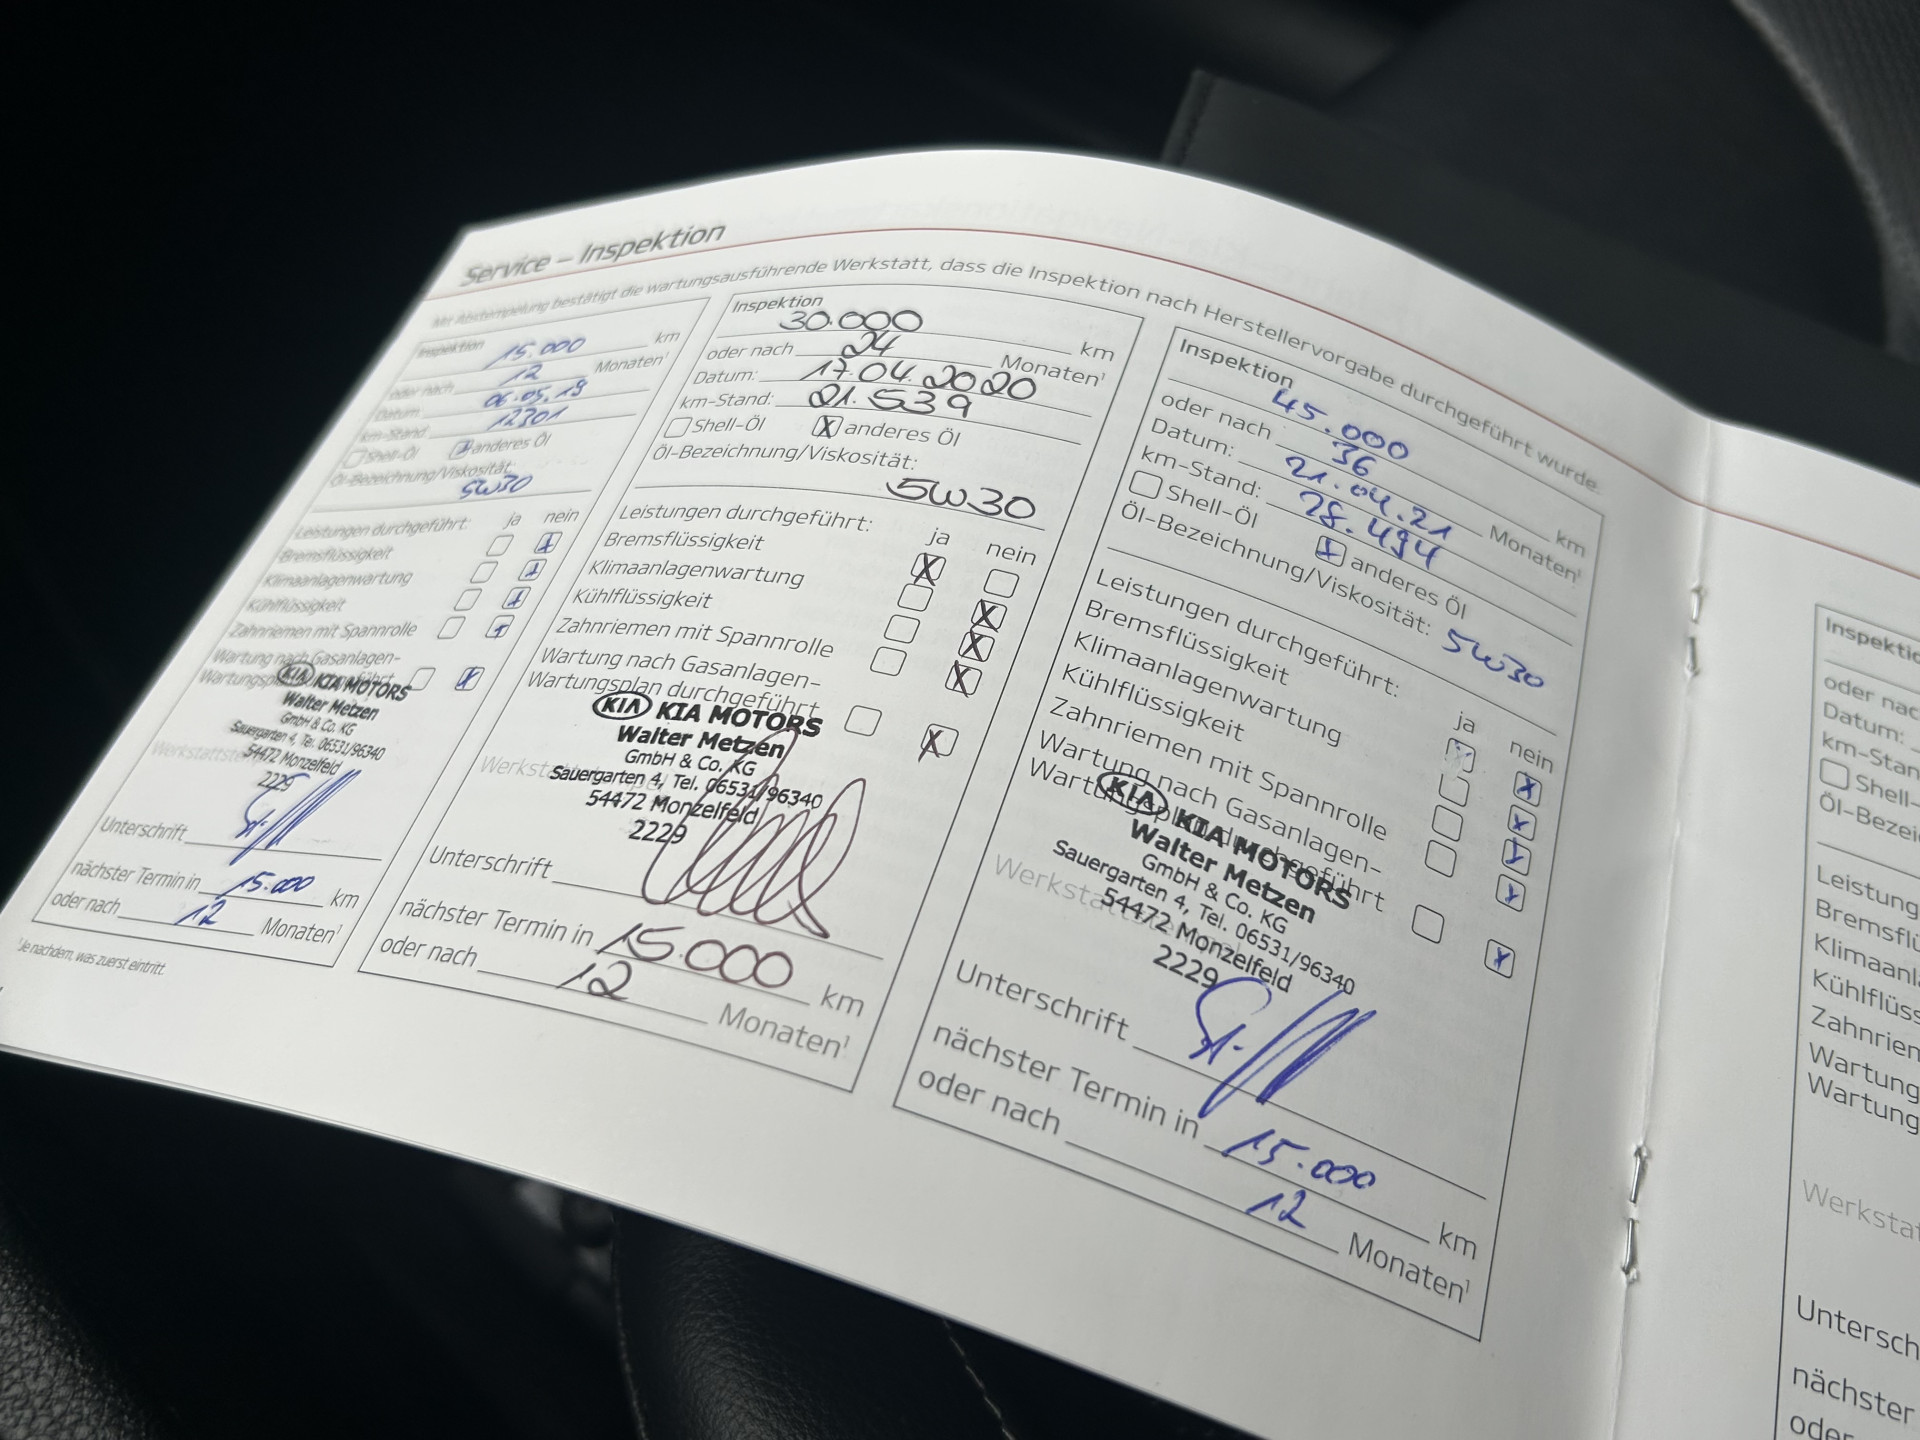 Service – Inspektion
Mit Abstempelung bestätigt die wartungsausführende Werkstatt, dass die Inspektion nach Herstellervorgabe durchgeführt wurde.
Inspektion 15.000 km
oder nach 12 Monaten¹
Datum: 06.05.19
km-Stand 12301
Shell-Öl anderes Öl
Öl-Bezeichnung/Viskosität:
5W30
Leistungen durchgeführt: ja nein
Bremsflüssigkeit
Klimaanlagenwartung
Kühlflüssigkeit
Zahnriemen mit Spannrolle
Wartung nach Gasanlagen-
Wartungsplan durchgeführt
KIA KIA MOTORS
Walter Metzen
GmbH & Co. KG
Sauergarten 4, Tel. 06531/96340
54472 Monzelfeld
2229
Unterschrift
nächster Termin in 15.000 km
oder nach 12 Monaten¹
¹Je nachdem, was zuerst eintritt.
Inspektion
30.000 km
oder nach 24 Monaten¹
Datum: 17.04.2020
km-Stand: 21.539
Shell-Öl X anderes Öl
Öl-Bezeichnung/Viskosität:
5W30
Leistungen durchgeführt: ja nein
Bremsflüssigkeit X
Klimaanlagenwartung X
Kühlflüssigkeit X
Zahnriemen mit Spannrolle X
Wartung nach Gasanlagen-
Wartungsplan durchgeführt X
KIA KIA MOTORS
Walter Metzen
GmbH & Co. KG
Sauergarten 4, Tel. 06531/96340
54472 Monzelfeld
2229
Unterschrift
nächster Termin in 15.000 km
oder nach 12 Monaten¹
Inspektion
45.000 km
oder nach 36 Monaten¹
Datum: 21.04.21
km-Stand: 28.494
Shell-Öl anderes Öl
Öl-Bezeichnung/Viskosität: 5W30
Leistungen durchgeführt: ja nein
Bremsflüssigkeit
Klimaanlagenwartung
Kühlflüssigkeit
Zahnriemen mit Spannrolle
Wartung nach Gasanlagen-
Wartungsplan durchgeführt
KIA KIA MOTORS
Walter Metzen
GmbH & Co. KG
Sauergarten 4, Tel. 06531/96340
54472 Monzelfeld
2229
Unterschrift
nächster Termin in 15.000 km
oder nach 12 Monaten¹
Inspektio
oder nac
Datum:
km-Stan
Shell-
Öl-Bezei
Leistung
Bremsflü
Klimaanl
Kühlflüss
Zahnrien
Wartung
Wartung
Werkstat
Untersch
nächster
oder